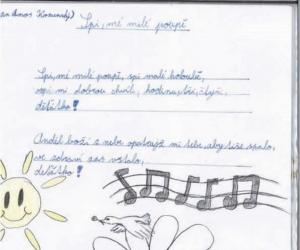 Jan Amos Komenský)
Spi, mé milé poupě
Spi, mé milé poupě, spi malé holoubě,
spi mi dobrou chvíli, hodinu, tři, čtyři,
děťátko!
Anděl boží s nebe opatruj mi tebe, aby tiše spalo,
ve zdraví zas vstalo,
děťátko!